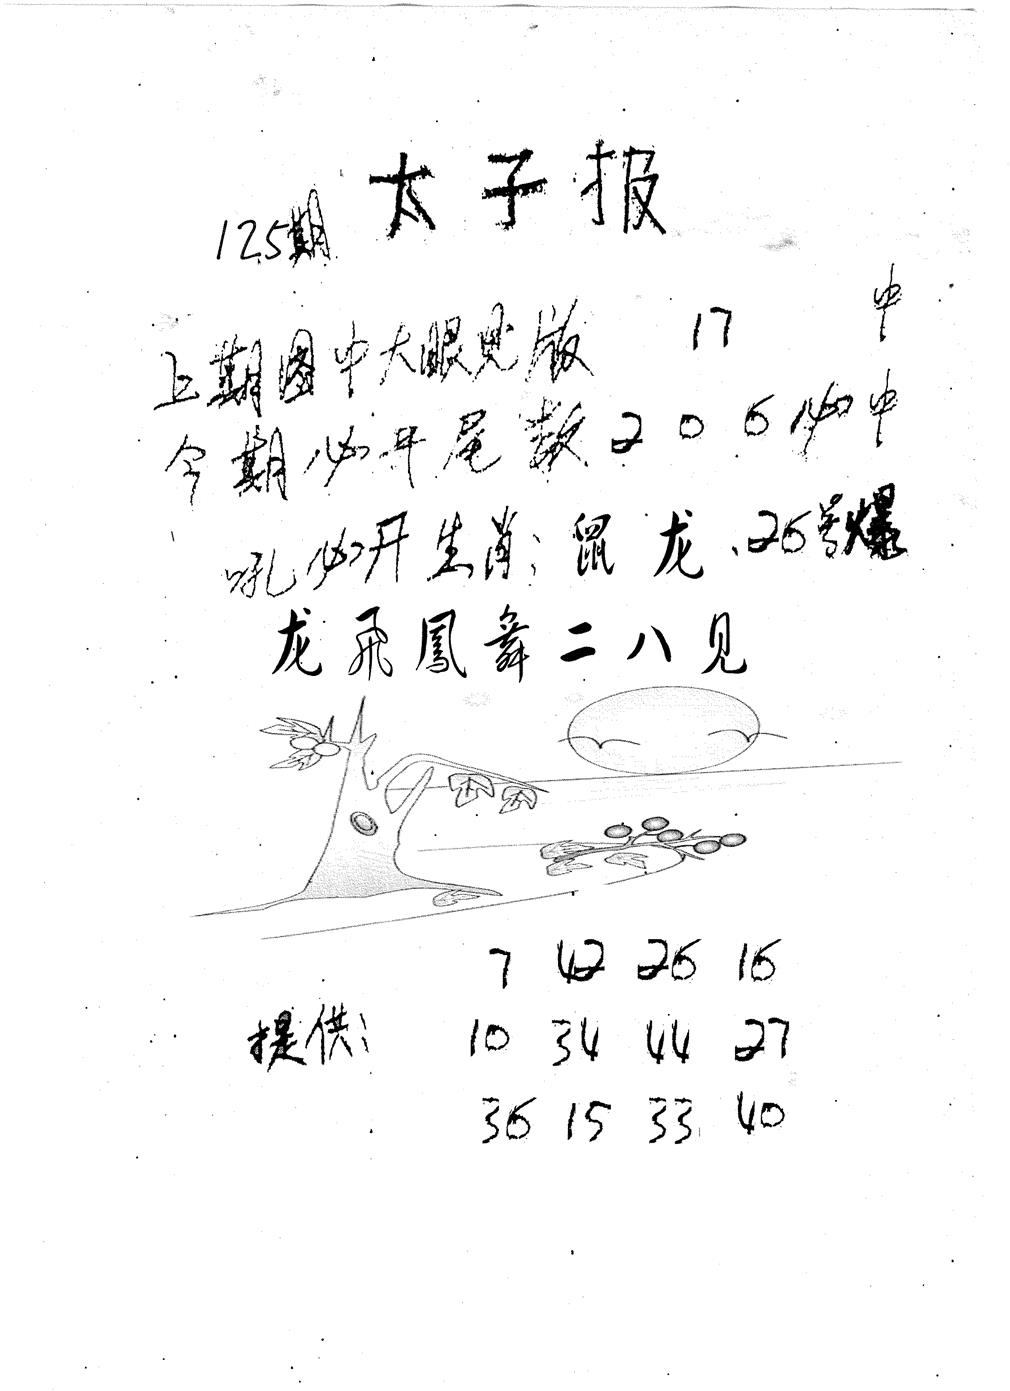 太子报
125期
上期图中大眼见版 17 中
今期必开尾数 2 0 6 必中
吼必开生肖：鼠 龙、26号爆
龙飛鳳舞二八见
7 42 26 16
提供： 10 34 44 27
36 15 33 40